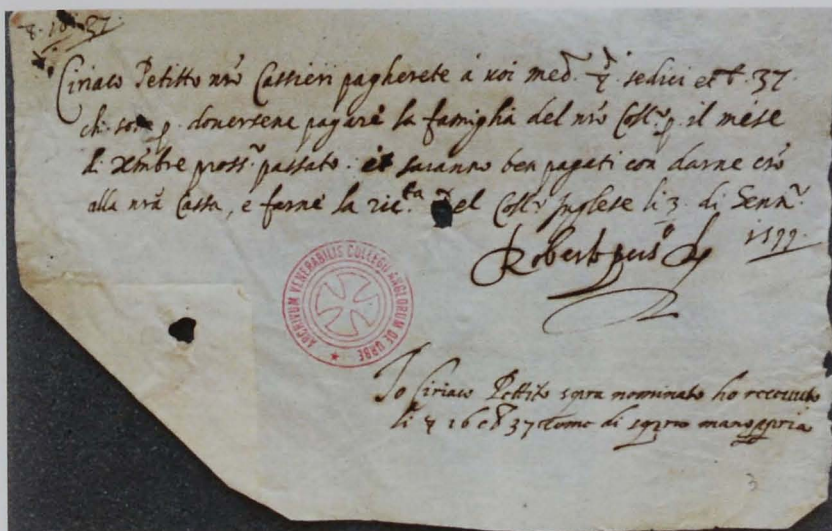 8. 10. 37.
Ciriaco Petitto nr̃o Cassieri pagherete á voi med.º ▽ sedici et b. 37
ch. sono p. doversene pagare la famiglia del nr̃o Coll.º p. il mese
di Xm̃bre pross.º passato. et saranno ben pagati con darne cr̃o
alla nr̃a Cassa, e farne la ric.ta Del Coll.º Inglese li 3. di Genn.º
1599.
Roberto persº
ARCHIVUM VENERABILIS COLLEGII ANGLORUM DE URBE
Io Ciriaco Pettito sopra nominato ho receuuto
li ▽ 16 et b 37 come di sopra mano ppria
3